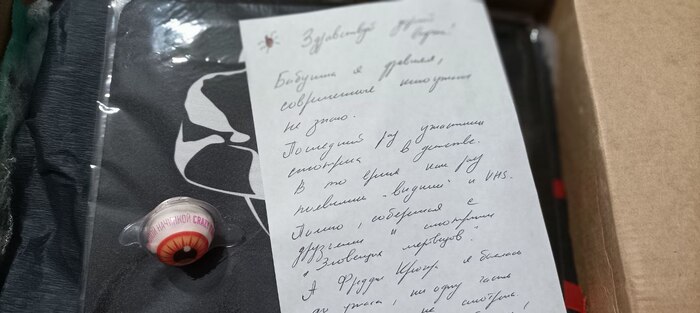 Здравствуй
Бабушка я древняя,
современные
не знаю.
Последний раз ужастики
смотрела в детстве.
В то время как раз
появились "видики" и VHS.
Помню, собереmся с
друзьями и смотрим
"Зловещих мертвецов".
А Фредди Крюгера я боялась
до ужаса, ни одну часть
не смотрела,
НАЧИНКОЙ CRAZY